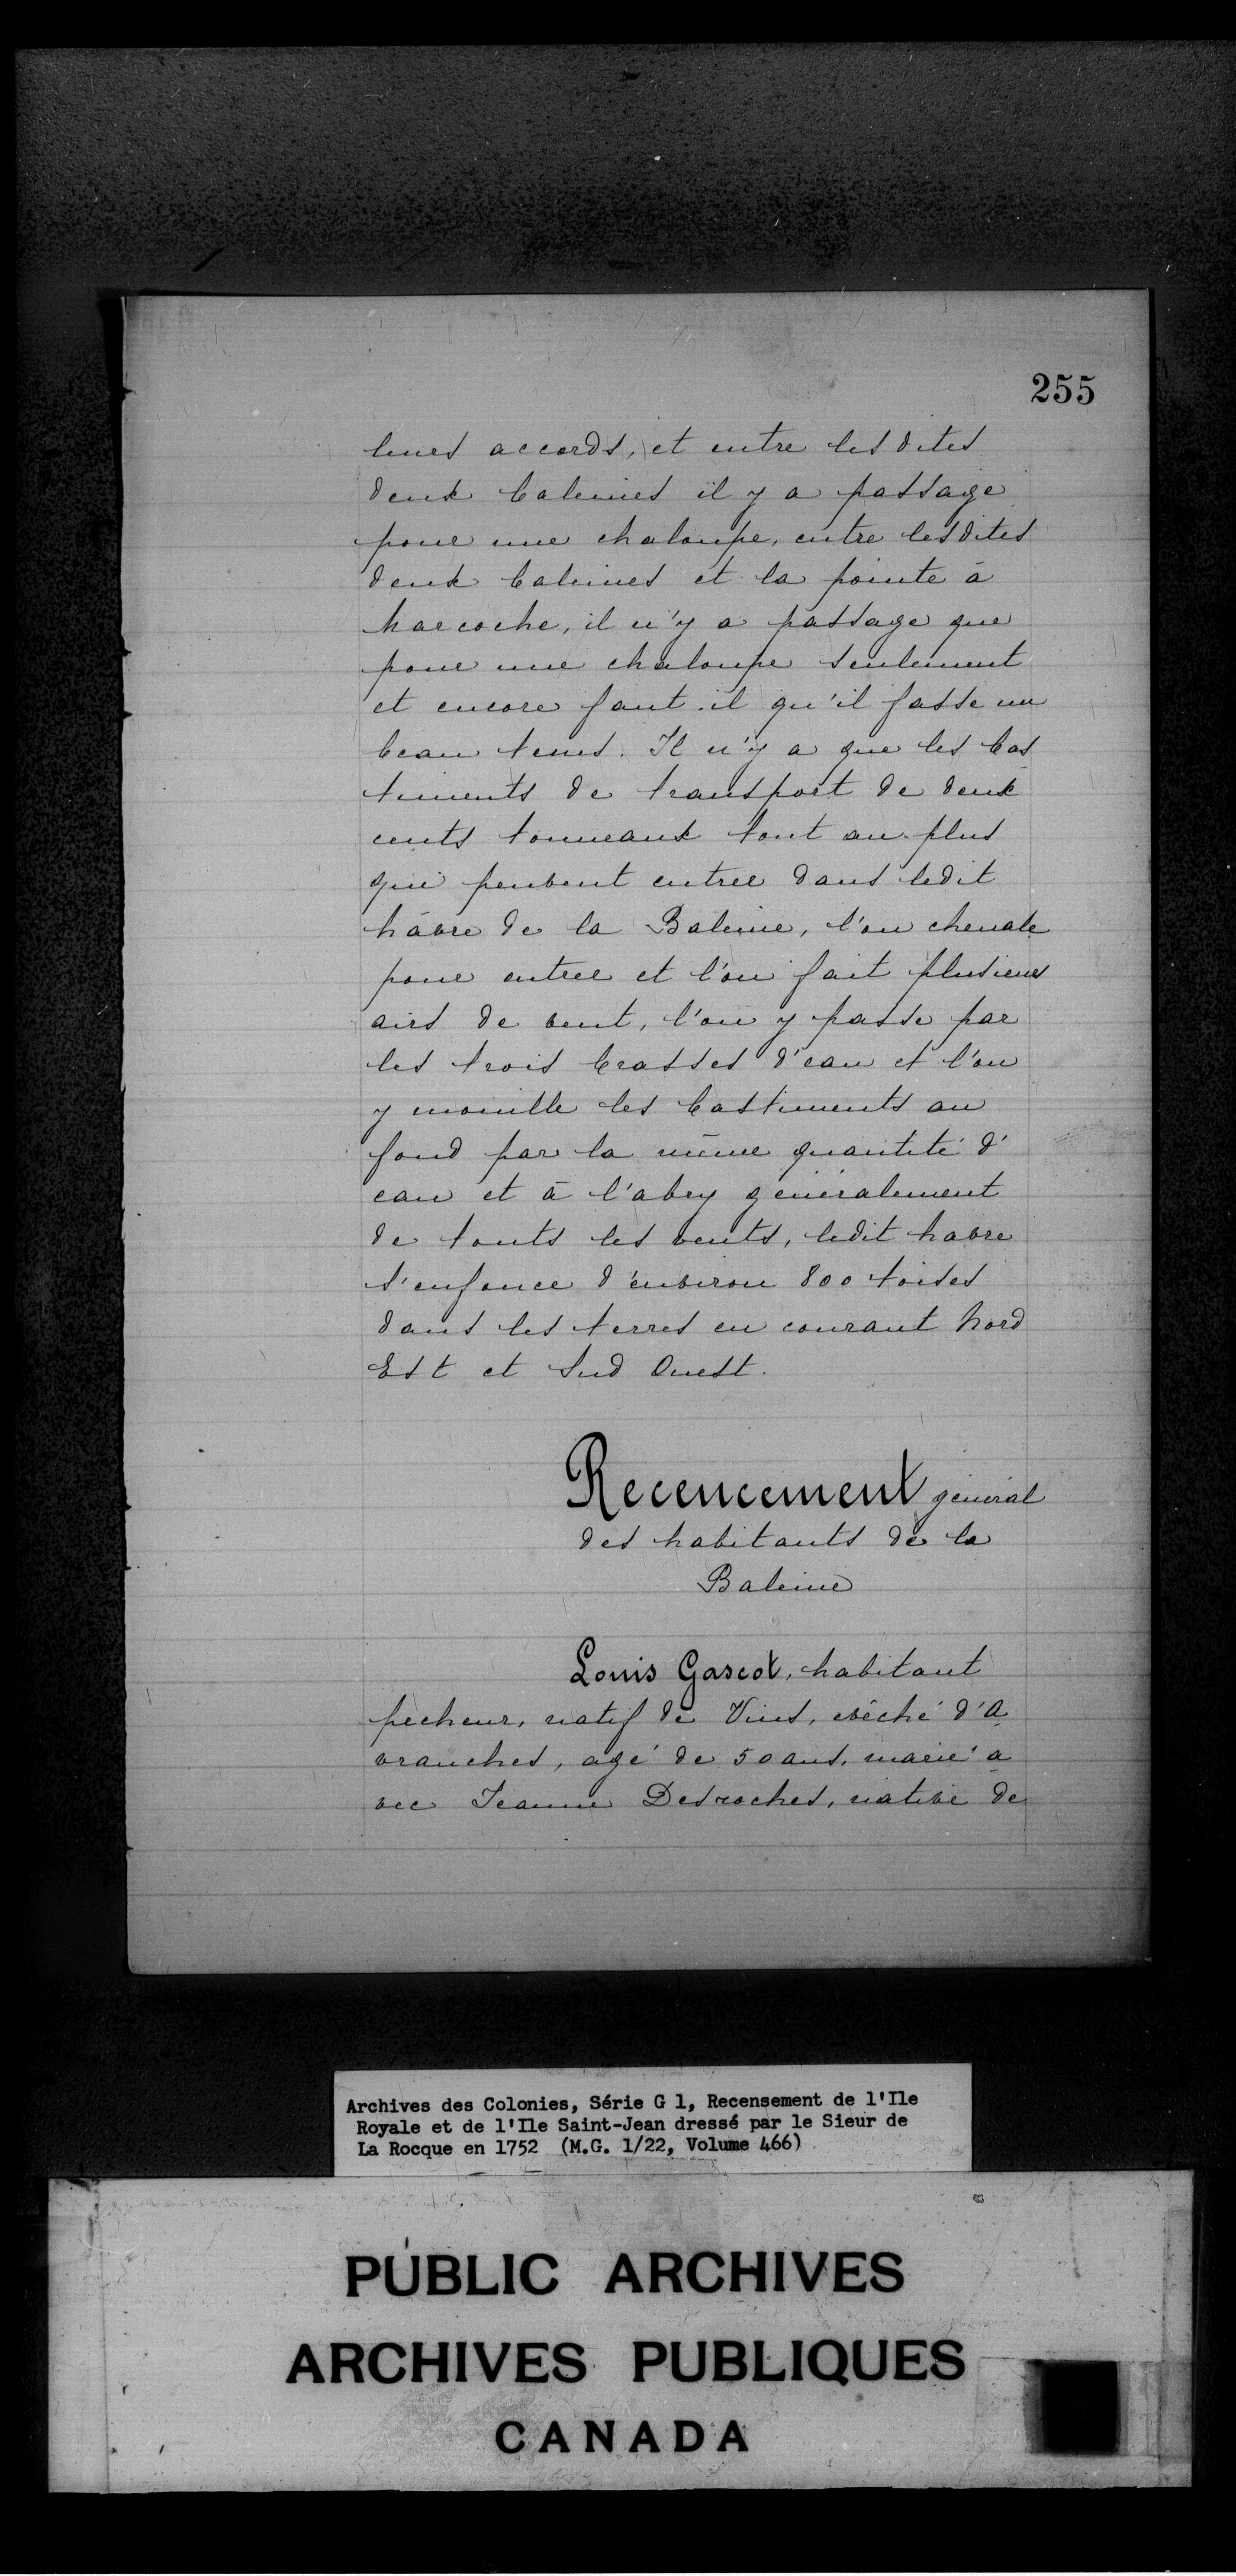 255
leurs accords, et entre les dites
deux Baleines il y a passage
pour une chaloupe, entre lesdites
deux Baleines et la pointe à
Marcoche, il n'y a passage que
pour une chaloupe seulement
et encore faut-il qu'il fasse un
beau tems. Il n'y a que les bas
timents de transport de deux
cents tonneaux tout au plus
qui peuvent entrer dans ledit
hâvre de la Baleine, l'on chenale
pour entrer et l'on fait plusieurs
airs de vent, l'on y passe par
les trois brasses d'eau et l'on
y mouille les bastiments au
fond par la même quantité d'
eau et à l'abry généralement
de touts les vents, ledit havre
s'enfonce d'environ 800 toises
dans les terres en courant Nord
Est et Sud Ouest.
Recencement général
des habitants de la
Baleine
Louis Gascot, habitant
pecheur, natif de Vins, evêché d'A
vranches, agé de 50 ans, marié a
vec Jeanne Desroches, native de
Archives des Colonies, Série G 1, Recensement de l'Ile
Royale et de l'Ile Saint-Jean dressé par le Sieur de
La Rocque en 1752 (M.G. 1/22, Volume 466)
PUBLIC ARCHIVES
ARCHIVES PUBLIQUES
CANADA